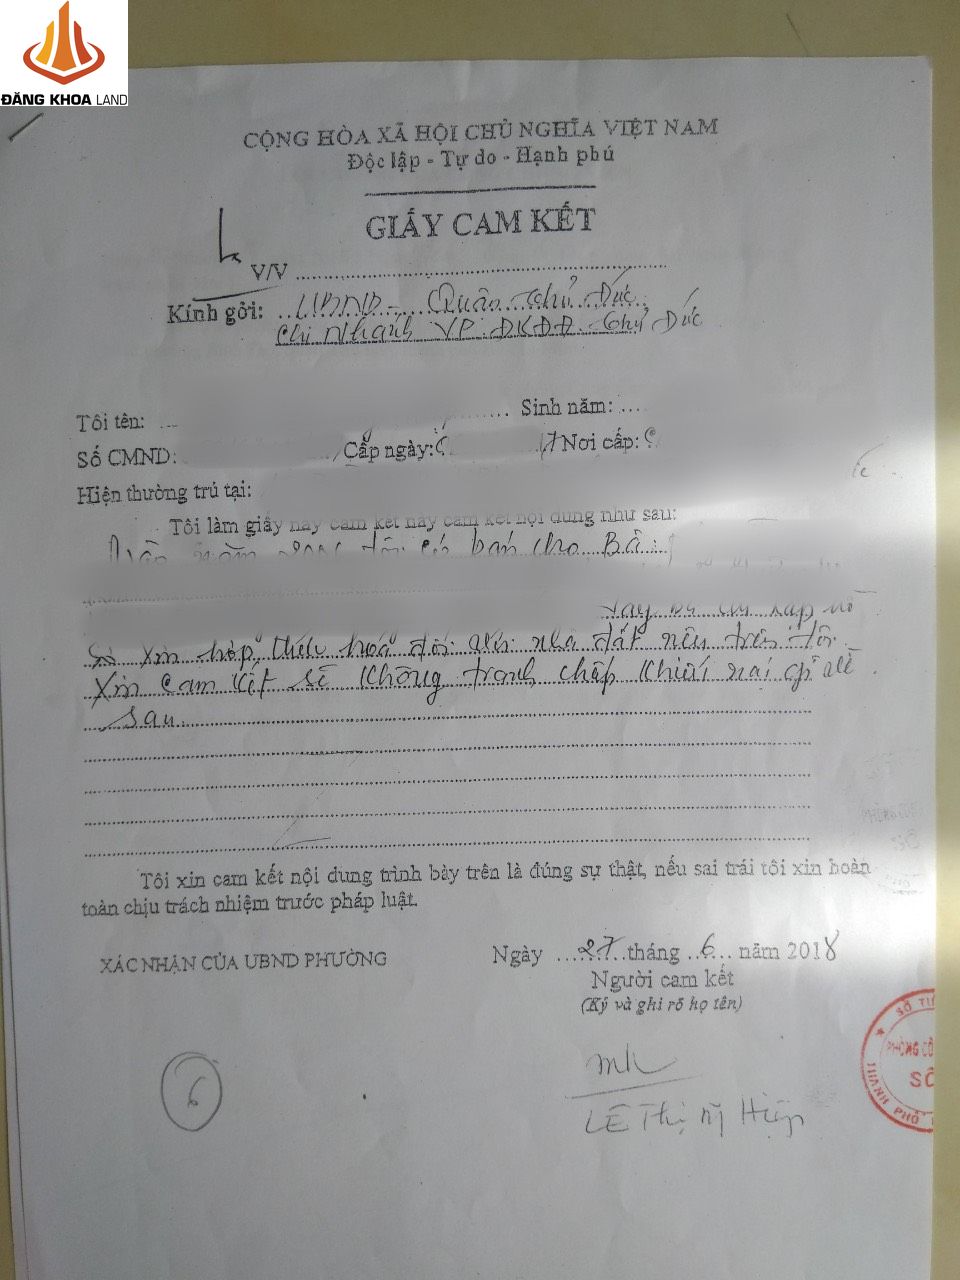 ĐĂNG KHOA LAND
CỘNG HÒA XÃ HỘI CHỦ NGHĨA VIỆT NAM
Độc lập - Tự do - Hạnh phú
GIẤY CAM KẾT
V/V
Kính gởi: UBND - Quận Thủ Đức
Chi Nhánh VP ĐKĐĐ Thủ Đức
Tôi tên: Sinh năm:
Số CMND: Cấp ngày: Nơi cấp:
Hiện thường trú tại:
Tôi làm giấy này cam kết này cam kết nội dung như sau:
tôi có bán cho Bà
xin hợp thức hoá đối với nhà đất nêu trên tôi
xin cam kết sẽ không tranh chấp khiếu nại gì về
sau.
Tôi xin cam kết nội dung trình bày trên là đúng sự thật, nếu sai trái tôi xin hoàn
toàn chịu trách nhiệm trước pháp luật.
XÁC NHẬN CỦA UBND PHƯỜNG
Ngày 27 tháng 6 năm 2018
Người cam kết
(Ký và ghi rõ họ tên)
6
LÊ Thị Mỹ Hiệp
SỞ TƯ
PHÒNG CÔ
SỐ
THÀNH PHỐ